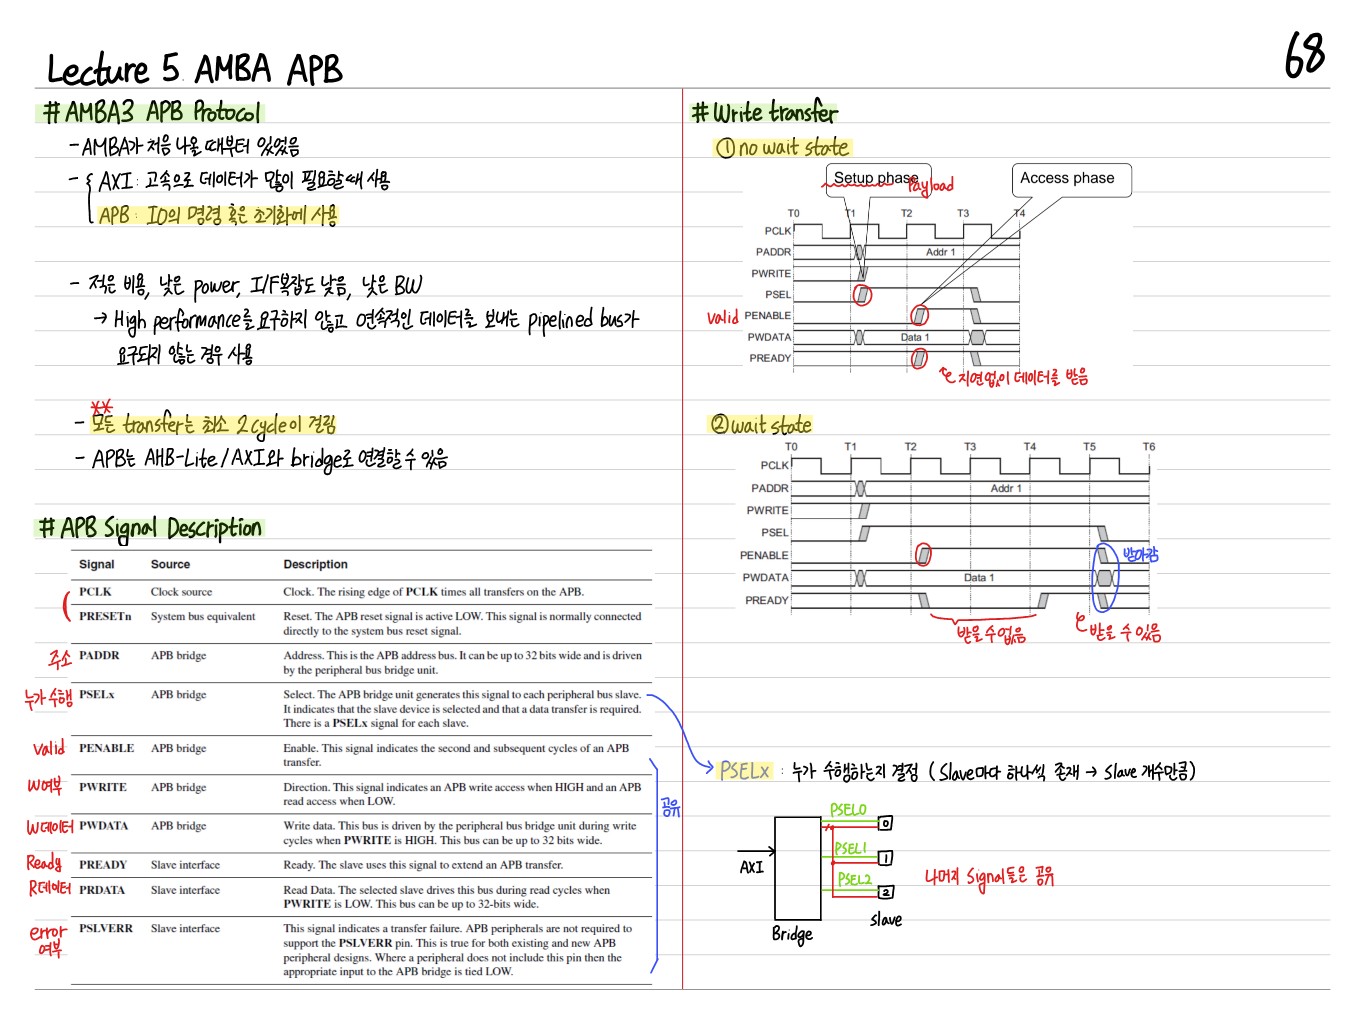 Lecture 5. AMBA APB
68
# AMBA3 APB Protocol
- AMBA가 처음 나올 때부터 있었음
- { AXI : 고속으로 데이터가 많이 필요할 때 사용
APB : IO의 명령 혹은 초기화에 사용
- 적은 비용, 낮은 power, I/F복잡도 낮음, 낮은 BW
→ High performance를 요구하지 않고 연속적인 데이터를 보내는 pipelined bus가
요구되지 않는 경우 사용
**
- 모든 transfer는 최소 2cycle이 걸림
- APB는 AHB-Lite/AXI와 bridge로 연결할 수 있음
# APB Signal Description
Signal Source Description
PCLK Clock source Clock. The rising edge of PCLK times all transfers on the APB.
PRESETn System bus equivalent Reset. The APB reset signal is active LOW. This signal is normally connected
directly to the system bus reset signal.
주소 PADDR APB bridge Address. This is the APB address bus. It can be up to 32 bits wide and is driven
by the peripheral bus bridge unit.
누가 수행 PSELx APB bridge Select. The APB bridge unit generates this signal to each peripheral bus slave.
It indicates that the slave device is selected and that a data transfer is required.
There is a PSELx signal for each slave.
valid PENABLE APB bridge Enable. This signal indicates the second and subsequent cycles of an APB
transfer.
W여부 PWRITE APB bridge Direction. This signal indicates an APB write access when HIGH and an APB
read access when LOW.
공유
W데이터 PWDATA APB bridge Write data. This bus is driven by the peripheral bus bridge unit during write
cycles when PWRITE is HIGH. This bus can be up to 32 bits wide.
Ready PREADY Slave interface Ready. The slave uses this signal to extend an APB transfer.
R데이터 PRDATA Slave interface Read Data. The selected slave drives this bus during read cycles when
PWRITE is LOW. This bus can be up to 32-bits wide.
error 여부 PSLVERR Slave interface This signal indicates a transfer failure. APB peripherals are not required to
support the PSLVERR pin. This is true for both existing and new APB
peripheral designs. Where a peripheral does not include this pin then the
appropriate input to the APB bridge is tied LOW.
# Write transfer
① no wait state
Setup phase Payload Access phase
T0 T1 T2 T3 T4
PCLK
PADDR Addr 1
PWRITE
PSEL
valid PENABLE
PWDATA Data 1
PREADY
지연없이 데이터를 받음
② wait state
T0 T1 T2 T3 T4 T5 T6
PCLK
PADDR Addr 1
PWRITE
PSEL
PENABLE 받아감
PWDATA Data 1
PREADY
받을 수 없음 받을 수 있음
PSELx : 누가 수행하는지 결정 (Slave마다 하나씩 존재 → Slave 개수만큼)
PSEL0 0
PSEL1 1
AXI
PSEL2 2
나머지 Signal들은 공유
slave
Bridge